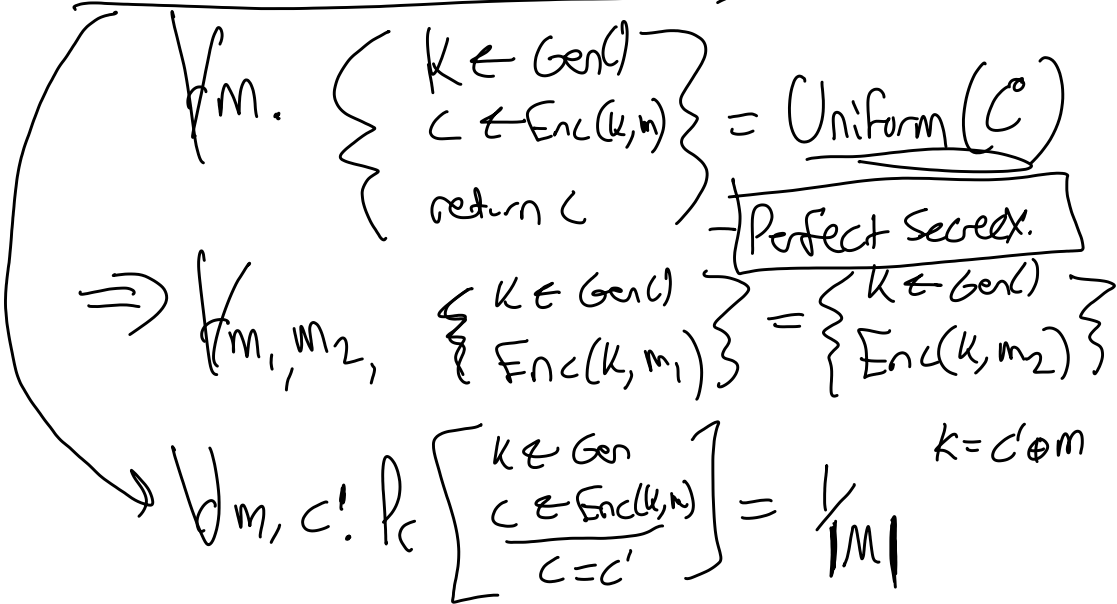 ∀m. { K ← Gen()
c ← Enc(k,m)
return c } = Uniform(C)
Perfect Secrecy.
⇒ ∀m₁, m₂, { K ← Gen()
Enc(k, m₁) } = { K ← Gen()
Enc(k, m₂) }
K = c' ⊕ m
∀m, c'. Pr [ K ← Gen
c ← Enc(k,m)
c = c' ] = 1/|M|